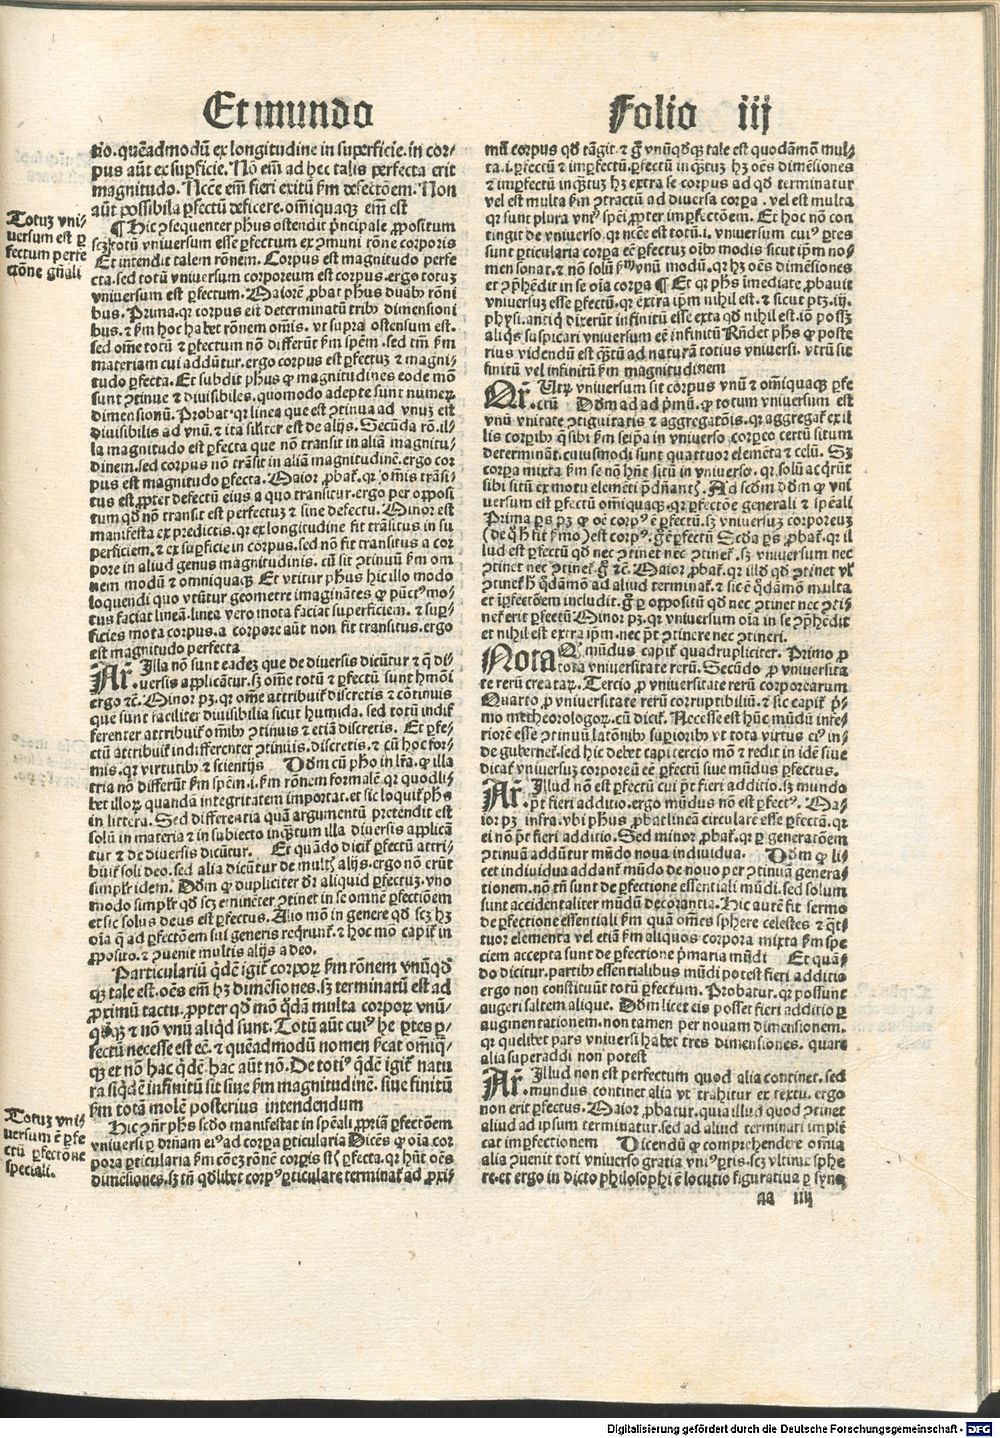 Et mundo
Folio iij
tio. quēadmodū ex longitudine in superficie. in cor/
pus aūt ex suꝑficie. Nō em̄ ad hec talis perfecta erit
magnitudo. Ncc̄e em̄ fieri exitū ẜm defectōem. Non
aūt possibila ꝑfectū deficere. om̄iquaqꝫ em̄ est
Totuꝫ vni/
uersum est ꝑ
fectum perfe
ctōne gn̄ali
¶ Hic ꝯsequenter ph̄us ostendit pͥncipale ꝓpositum
scꝫ totū vniuersum esse ꝑfectum ex ꝯmuni rōne corporis
Et intendit talem rōnem. Corpus est magnitudo perfe
cta. sed totū vniuersum corporeum est corpus. ergo totuꝫ
vniuersum est ꝑfectum. Maiorē ꝓbat ph̄us duabꝰ rōni
bus. Prima. qꝛ corpus eīt determinatū tribꝰ dimensioni
bus. ⁊ ẜm hoc habet rōnem om̄is. vt supra ostensum est.
sed om̄e totū ⁊ ꝑfectum nō differūt ẜm spēm. sed tm̄ ẜm
materiam cui addūtur. ergo corpus est ꝑfectuꝫ ⁊ magni/
tudo ꝑfecta. Et subdit ph̄us ꝙ magnitudines eode mō
sunt ꝯtinue ⁊ diuisibiles. quomodo adepte sunt numeꝝ
dimensionū. Probat. qꝛ linea que est ꝯtinua ad vnuꝫ eīt
diuisibilis ad vnū. ⁊ ita siliter est de alijs. Secūda rō. il/
la magnitudo est ꝑfecta que nō transit in aliā magnitu/
dinem. sed corpus nō trāsit in aliā magnitudinē. ergo cor
pus est magnitudo ꝑfecta. Maior ꝓbaꝉ. qꝛ om̄is trāsi/
tus est ꝓpter defectū eius a quo transitur. ergo per opposi
tum qd̄ nō transit est perfectuꝫ ⁊ sine defectu. Minor est
manifesta ex predictis. qꝛ ex longitudine fit trāsitus in su
perficiem. ⁊ ex suꝑficie in corpus. sed nō fit transitus a cor
pore in aliud genus magnitudinis. cū sit ꝯtinuū ẜm om
nem modū ⁊ omniquaqꝫ Et vtitur ph̄us hic illo modo
loquendi quo vtūtur geometre imaginātes ꝙ pūctꝰ mo/
tus faciat lineā. linea vero mota faciat superficiem. ⁊ suꝑ/
ficies mota corpus. a corpore aūt non fit transitus. ergo
est magnitudo perfecta
Ar̄. Illa nō sunt eadeꝫ que de diuersis dicūtur ⁊ q̄ di/
uersis applicātur. sꝫ om̄e totū ⁊ ꝑfectū sunt hmōi
ergo ⁊c̄. Minor pꝫ. qꝛ om̄e attribuiꝉ discretis ⁊ cōtinuis
que sunt faciliter diuisibilia sicut humida. sed totū indif
ferenter attribuiꝉ om̄ibꝰ ꝯtinuis ⁊ etiā discretis. Et ꝑfe/
ctū attribuiꝉ indifferenter ꝯtinuis. discretis. ⁊ cū hoc for/
mis. qꝛ virtutibꝰ ⁊ scientijs Dd̄m cū ph̄o in lr̄a. ꝙ illa
tria nō differūt ẜm spēm. i. ẜm rōnem formalē. qꝛ quodli/
bet illoꝝ quandā integritatem importat. et sic loquiꝉ ph̄s
in littera. Sed differentia quā argumentū pretendit est
solū in materia ⁊ in subiecto inqꝫtum illa diuersis applicā
tur ⁊ de diuersis dicūtur. Et quādo diciꝉ ꝑfectū attri/
buiꝉ soli deo. sed alia dicūtur de multꝭ alijs. ergo nō erūt
simplr̄ idem. Dd̄m ꝙ dupliciter dr̄ aliquid ꝑfectuꝫ. vno
modo simplr̄ qd̄ scꝫ eminēter ꝯtinet in se omnē ꝑfectiōem
et sic solus deus est ꝑfectus. Alio mō in genere qd̄ scꝫ hꝫ
oīa q̄ ad ꝑfectōem sui generis reqͥrunꝉ. ⁊ hoc mō capiꝉ in
ꝓposito. ⁊ ꝯuenit multis alijs a deo.
Particulariū qͥdē igiꝉ corpoꝝ ẜm rōnem vnūqd̄
qꝫ tale est. oēs em̄ hꝫ dimēsiones. sꝫ terminatū est ad
ꝓximū tactu. ꝓpter qd̄ mō qͥdā multa corpoꝝ vnū/
qd̄qꝫ ⁊ nō vnū aliqd̄ sunt. Totū aūt cuiꝰ he ꝑtes ꝑ/
fectū necesse est eē. ⁊ quēadmodū nomen ẜcat om̄iqͣ/
qꝫ et nō hac qͥdē hac aūt nō. De totiꝰ qͥdē igiꝉ natu
ra siqͥdē infinitū sit siue ẜm magnitudinē. siue finitū
ẜm totā molē posterius intendendum
Totuꝫ vni/
uersum ē ꝑfe
ctū ꝑfectōne
speciali.
Hic ꝯn̄r ph̄s scd̄o manifestat in spēali ꝓpriā ꝑfectōem
vniuersi ꝑ dr̄nam eiꝰ ad corpa ꝑticularia Dicēs ꝙ oīa cor
pora ꝑticularia ẜm cōeꝫ rōnē corpis stꝭ ꝑfecta. qꝛ hn̄t oēs
dimēsiones. sꝫ tn̄ qd̄libet corpꝰ ꝑticulare terminaꝉ ad ꝓxi/
mū corpus qd̄ tāgit. ⁊ g̊ vnūqd̄qꝫ tale est quodāmō mul/
ta. i. ꝑfectū ⁊ imꝑfectū. ꝑfectū inqꝫtuꝫ hꝫ oēs dimēsiones
⁊ imꝑfectū inqꝫtuꝫ hꝫ extra se corpus ad qd̄ terminatur
vel est multa ẜm ꝯtractū ad diuersa corpa. vel est multa
qꝛ sunt plura vniꝰ spēi ꝓpter imꝑfectōem. Et hoc nō con
tingit de vniuerso qꝛ ncc̄e est totū. i. vniuersum cuiꝰ ꝑtes
sunt ꝑticularia corpa eē ꝑfectū oībꝰ modis sicut ip̄m no/
men sonat. ⁊ nō solū ẜm vnū modū. qꝛ hꝫ oēs dimēsiones
et ꝯp̄hēdit in se oīa corpa ¶ Et qꝛ ph̄s īmediate ꝓbauit
vniuersuꝫ esse ꝑfectū. qꝛ extra ip̄m nihil est. ⁊ sicut ptꝫ. iij.
physi. antiqͥ dixerūt infinitū esse extra qd̄ nihil est. iō possꝫ
aliqͥs suspicari vniuersum eē infinitū Rn̄det ph̄s ꝙ poste
rius videndū est qꝫtū ad naturā totius vniuersi. vtrū sit
finitū vel infinitū ẜm magnitudinem
Qr̄. Vtrꝫ vniuersum sit corpus vnū ⁊ om̄iquaqꝫ ꝑfe
ctū Dd̄m ad ad pͥmū. ꝙ totum vniuersum est
vnū vnitate ꝯtiguitatis ⁊ aggregatōis. qꝛ aggregaꝉ ex il
lis corpibꝰ q̄ sibi ẜm seip̄a in vniuerso corpeo certū situm
determināt. cuiusmodi sunt quattuor elemēta ⁊ celū. Sꝫ
corpa mixta ẜm se nō hn̄t sitū in vniuerso. qꝛ solū acqͥrūt
sibi sitū ex motu elemēti pͥdn̄antꝭ. Ad scd̄m dd̄m ꝙ vni
uersum est ꝑfectū om̄iquaqꝫ. qꝛ ꝑfectōe generali ⁊ spēali
Prima ps pꝫ ꝙ oē corpꝰ ē ꝑfectū. sꝫ vniuersuꝫ corporeuꝫ
(de q̊ h̄ fit ẜmo) est corpꝰ. g̊ ē ꝑfectū Scd̄a ps ꝓbaꝉ. qꝛ il
lud est ꝑfectū qd̄ nec ꝯtinet nec ꝯtineꝉ. sꝫ vniuersum nec
ꝯtinet nec ꝯtineꝉ. g̊ ⁊c̄. Maior ꝓbaꝉ. qꝛ illd̄ qd̄ ꝯtinet vꝉ
ꝯtineꝉ h̄ qͥdāmō ad aliud terminaꝉ. ⁊ sic ē qͥdāmō multa
et īꝑfectōem includit. g̊ ꝑ oppositū qd̄ nec ꝯtinet nec ꝯti/
neꝉ erit ꝑfectū Minor pꝫ. qꝛ vniuersum oīa in se ꝯp̄hēdit
et nihil est extra ip̄m. nec pͥt ꝯtinere nec ꝯtineri.
Nota Qꝙ mūdus capiꝉ quadrupliciter. Primo ꝓ
tota vniuersitate rerū. Secūdo ꝓ vniuersita
te rerū creataꝝ. Tercio ꝓ vniuersitate rerū corporearum
Quarto ꝓ vniuersitate rerū corruptibiliū. ⁊ sic capiꝉ pͥ/
mo metheorologoꝝ. cū diciꝉ. Necesse est hūc mūdū infe/
riorē esse ꝯtinuū latōnibꝰ suꝑioribꝰ vt tota virtus eiꝰ in/
de guberneꝉ. sed hic debet capi tercio mō ⁊ redit in idē siue
dicaꝉ vniuersuꝫ corporeū eē ꝑfectū siue mūdus ꝑfectus.
Ar̄. Illud nō est ꝑfectū cui pͥt fieri additio. sꝫ mundo
pͥt fieri additio. ergo mūdus nō est ꝑfectꝰ. Ma/
ior pꝫ infra. vbi ph̄us ꝓbat lineā circularē esse ꝑfectā. qꝛ
ei nō pͥt fieri additio. Sed minor ꝓbaꝉ. qꝛ ꝑ generatōem
ꝯtinuā addūtur mūdo noua indiuidua. Dd̄m ꝙ li/
cet indiuidua addanꝉ mūdo de nouo per ꝯtinuā genera/
tionem. nō tn̄ sunt de ꝑfectione essentiali mūdi. sed solum
sunt accidentaliter mūdū decorantia. Hic autē fit sermo
de ꝑfectione essentiali ẜm quā om̄es sphere celestes ⁊ qͣt/
tuor elementa vel etiā ẜm aliquos corpora mixta ẜm spe
ciem accepta sunt de ꝑfectione pͥmaria mūdi Et quā/
do dicitur. partibꝰ essentialibus mūdi potest fieri additio
ergo non constituūt totū ꝑfectum. Probatur. qꝛ possunt
augeri saltem alique. Dd̄m licet eis posset fieri additio ꝑ
augmentationem. non tamen per nouam dimensionem.
qꝛ quelibet pars vniuersi habet tres dimensiones. quare
alia superaddi non potest
Ar̄. Illud non est perfectum quod alia continet. sed
mundus continet alia vt trahitur ex textu. ergo
non erit ꝑfectus. Maior ꝓbatur. quia illud quod ꝯtinet
aliud ad ipsum terminatur. sed ad aliud terminari impli
cat imperfectionem Dicendū ꝙ comprehendere omnia
alia ꝯuenit toti vniuerso gratia vniꝰ ꝑtis. scꝫ vltime sphe
re. et ergo in dicto philosophi ē locutio figuratiua ꝑ syne
aa iij
Digitalisierung gefördert durch die Deutsche Forschungsgemeinschaft - DFG